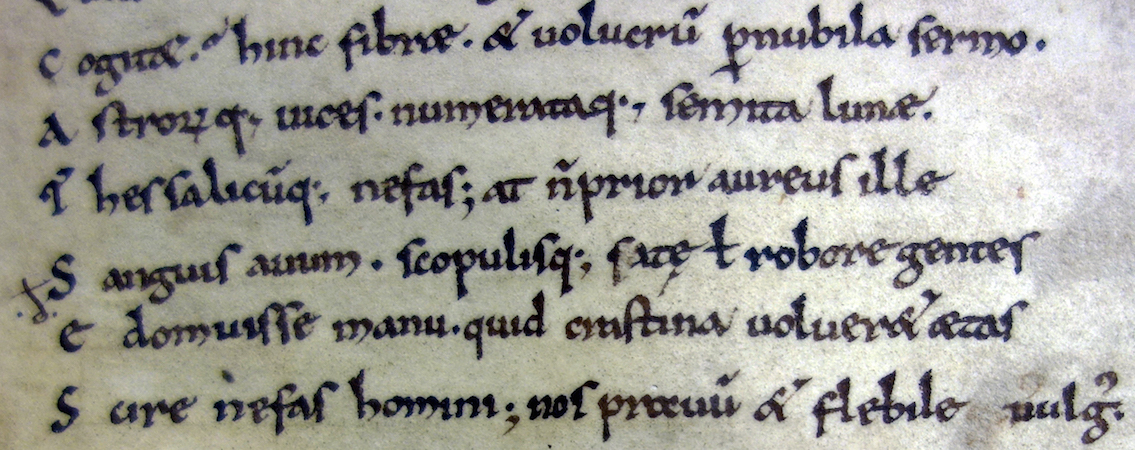 C ogitãe. hinc fibrae. & uolucrũ ꝑnubila sermo.
A stroꝝq; uices. numerataq; semita lunae.
T hessalicũq; nefas; at ñ prior aureus ille
S anguis auum. scopulisq; satę ł robore gentes
E domuisse manu. quid crastina uoluer& aetas
S cire nefas homini; nos prauũ & flebile uulgꝰ.